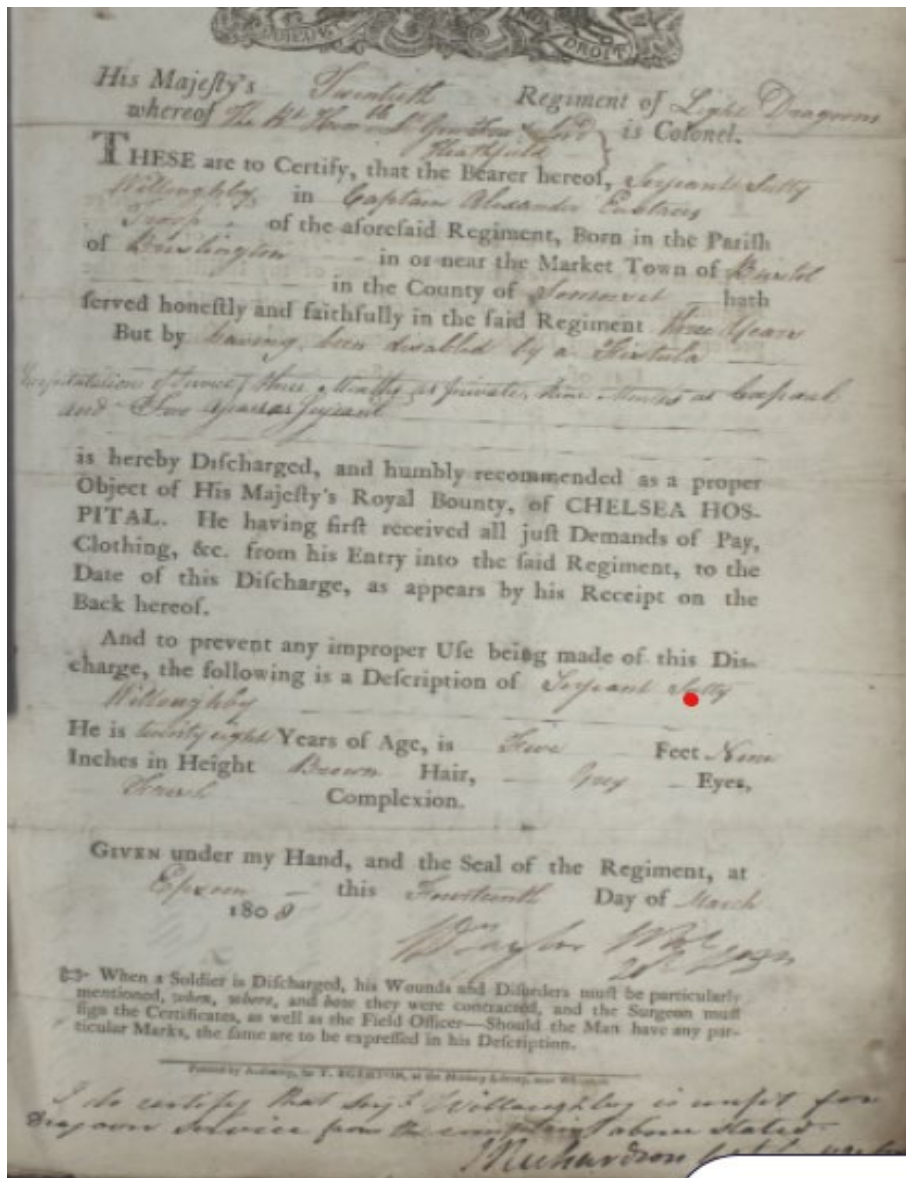 DROIT
His Majeſty's Twentieth Regiment of Light Dragoons
whereof The Rt Honble Lt General Lord } is Colonel.
Heathfield
THESE are to Certify, that the Bearer hereof, Serjeant Sutty
Willoughby in Captain Alexander
Troop of the aforeſaid Regiment, Born in the Pariſh
of Brislington in or near the Market Town of Bristol
in the County of Somerset hath
ſerved honeſtly and faithfully in the ſaid Regiment three Years
But by having been disabled by a Fistula
of Service, three Months as private, nine Months as Corporal
and Two Years as Serjeant
is hereby Diſcharged, and humbly recommended as a proper
Object of His Majeſty's Royal Bounty, of CHELSEA HOS-
PITAL. He having firſt received all juſt Demands of Pay,
Clothing, &c. from his Entry into the ſaid Regiment, to the
Date of this Diſcharge, as appears by his Receipt on the
Back hereof.
And to prevent any improper Uſe being made of this Diſ-
charge, the following is a Deſcription of Serjeant Sutty
Willoughby
He is twenty eight Years of Age, is Five Feet Nine
Inches in Height Brown Hair, Grey Eyes,
Fresh Complexion.
GIVEN under my Hand, and the Seal of the Regiment, at
Epsom this Fourteenth Day of March
1808
Taylor
When a Soldier is Diſcharged, his Wounds and Diſorders muſt be particularly
mentioned, when, where, and how they were contracted, and the Surgeon muſt
ſign the Certificates, as well as the Field Officer—Should the Man have any par-
ticular Marks, the ſame are to be expreſſed in his Deſcription.
Printed by Authority, for T. EGERTON, at the Military Library, near Whitehall
I do certify that Serjt Willoughby is unfit for
Dragoon Service from the complaint above stated
Richardson